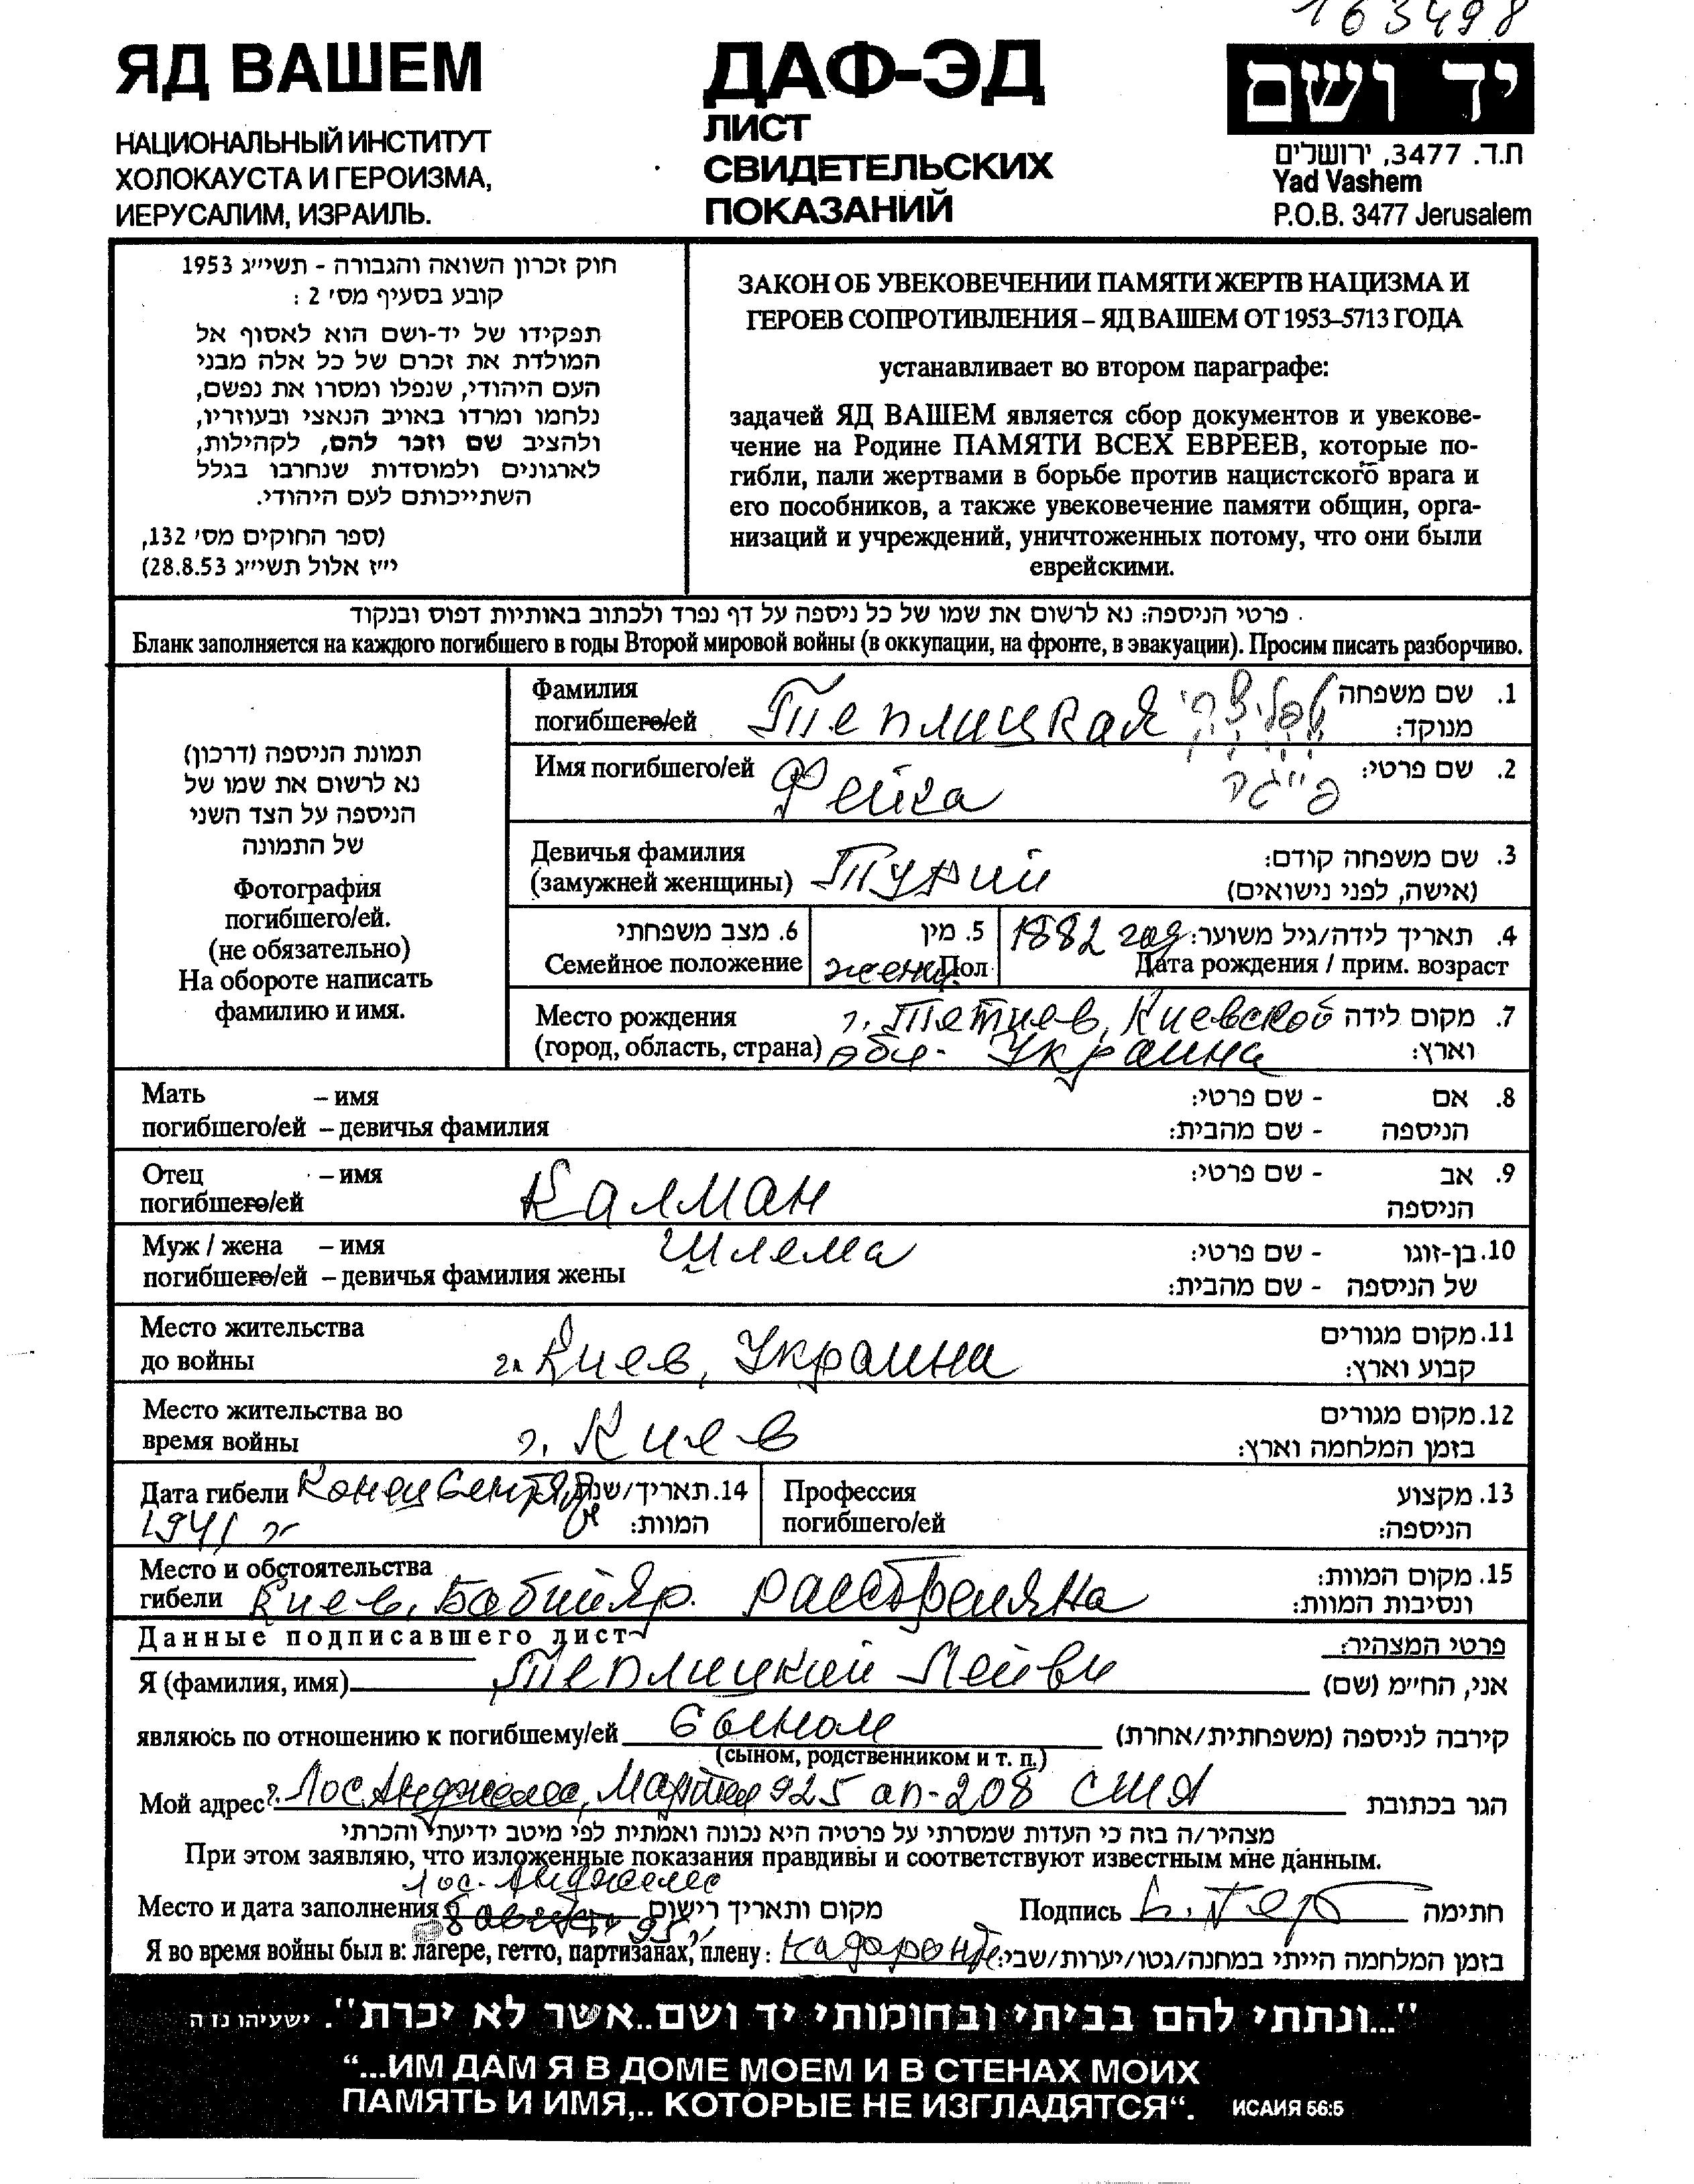 163498
ЯД ВАШЕМ
НАЦИОНАЛЬНЫЙ ИНСТИТУТ
ХОЛОКАУСТА И ГЕРОИЗМА,
ИЕРУСАЛИМ, ИЗРАИЛЬ.
ДАФ-ЭД
ЛИСТ
СВИДЕТЕЛЬСКИХ
ПОКАЗАНИЙ
יד ושם
ת.ד. 3477, ירושלים
Yad Vashem
P.O.B. 3477 Jerusalem
חוק זכרון השואה והגבורה - תשי״ג 1953
קובע בסעיף מס׳ 2 :
תפקידו של יד-ושם הוא לאסוף אל
המולדת את זכרם של כל אלה מבני
העם היהודי, שנפלו ומסרו את נפשם,
נלחמו ומרדו באויב הנאצי ובעוזריו,
ולהציב שם וזכר להם, לקהילות,
לארגונים ולמוסדות שנחרבו בגלל
השתייכותם לעם היהודי.
(ספר החוקים מס׳ 132,
י״ז אלול תשי״ג 28.8.53)
ЗАКОН ОБ УВЕКОВЕЧЕНИИ ПАМЯТИ ЖЕРТВ НАЦИЗМА И
ГЕРОЕВ СОПРОТИВЛЕНИЯ – ЯД ВАШЕМ ОТ 1953–5713 ГОДА
устанавливает во втором параграфе:
задачей ЯД ВАШЕМ является сбор документов и увекове-
чение на Родине ПАМЯТИ ВСЕХ ЕВРЕЕВ, которые по-
гибли, пали жертвами в борьбе против нацистского врага и
его пособников, а также увековечение памяти общин, орга-
низаций и учреждений, уничтоженных потому, что они были
еврейскими.
פרטי הניספה: נא לרשום את שמו של כל ניספה על דף נפרד ולכתוב באותיות דפוס ובנקוד
Бланк заполняется на каждого погибшего в годы Второй мировой войны (в оккупации, на фронте, в эвакуации). Просим писать разборчиво.
תמונת הניספה (דרכון)
נא לרשום את שמו של
הניספה על הצד השני
של התמונה
Фотография
погибшего/ей.
(не обязательно)
На обороте написать
фамилию и имя.
Фамилия Теплицкая טפליצקי 1. שם משפחה
погибшего/ей מנוקד:
Имя погибшего/ей Фейга פייגה 2. שם פרטי:
Девичья фамилия Турий 3. שם משפחה קודם:
(замужней женщины) (אישה, לפני נישואים)
6. מצב משפחתי 5. מין 1882 год 4. תאריך לידה/גיל משוער:
Семейное положение женщ. Пол Дата рождения / прим. возраст
Место рождения г. Тетиев, Киевской 7. מקום לידה
(город, область, страна) обл. Украина וארץ:
Мать – имя 8. אם - שם פרטי:
погибшего/ей – девичья фамилия הניספה - שם מהבית:
Отец – имя Калман 9. אב - שם פרטי:
погибшего/ей הניספה
Муж / жена – имя Шлема 10. בן-זוגו - שם פרטי:
погибшего/ей – девичья фамилия жены של הניספה - שם מהבית:
Место жительства 11. מקום מגורים
до войны г. Киев, Украина קבוע וארץ:
Место жительства во 12. מקום מגורים
время войны г. Киев בזמן המלחמה וארץ:
Дата гибели Конец Сентября 14. תאריך/שנת Профессия 13. מקצוע
1941 г המוות: погибшего/ей הניספה:
Место и обстоятельства 15. מקום המוות:
гибели Киев, Бабий Яр. расстреляна ונסיבות המוות:
Данные подписавшего лист פרטי המצהיר:
Я (фамилия, имя) Теплицкий Лейви אני, החי״מ (שם)
являюсь по отношению к погибшему/ей Сыном קירבה לניספה (משפחתית/אחרת)
(сыном, родственником и т. п.)
Мой адрес г. Лос Анджелес, 925 ап-208 США הגר בכתובת
מצהיר/ה בזה כי העדות שמסרתי על פרטיה היא נכונה ואמתית לפי מיטב ידיעתי והכרתי
При этом заявляю, что изложенные показания правдивы и соответствуют известным мне данным.
Лос-Анджелес
Место и дата заполнения 8 август 95 מקום ותאריך רישום Подпись חתימה
Я во время войны был в: лагере, гетто, партизанах, плену: בזמן המלחמה הייתי במחנה/גטו/יערות/שבי:
"...ונתתי להם בביתי ובחומותי יד ושם..אשר לא יכרת". ישעיהו נו ה
“...ИМ ДАМ Я В ДОМЕ МОЕМ И В СТЕНАХ МОИХ
ПАМЯТЬ И ИМЯ,.. КОТОРЫЕ НЕ ИЗГЛАДЯТСЯ“. ИСАИЯ 56:5